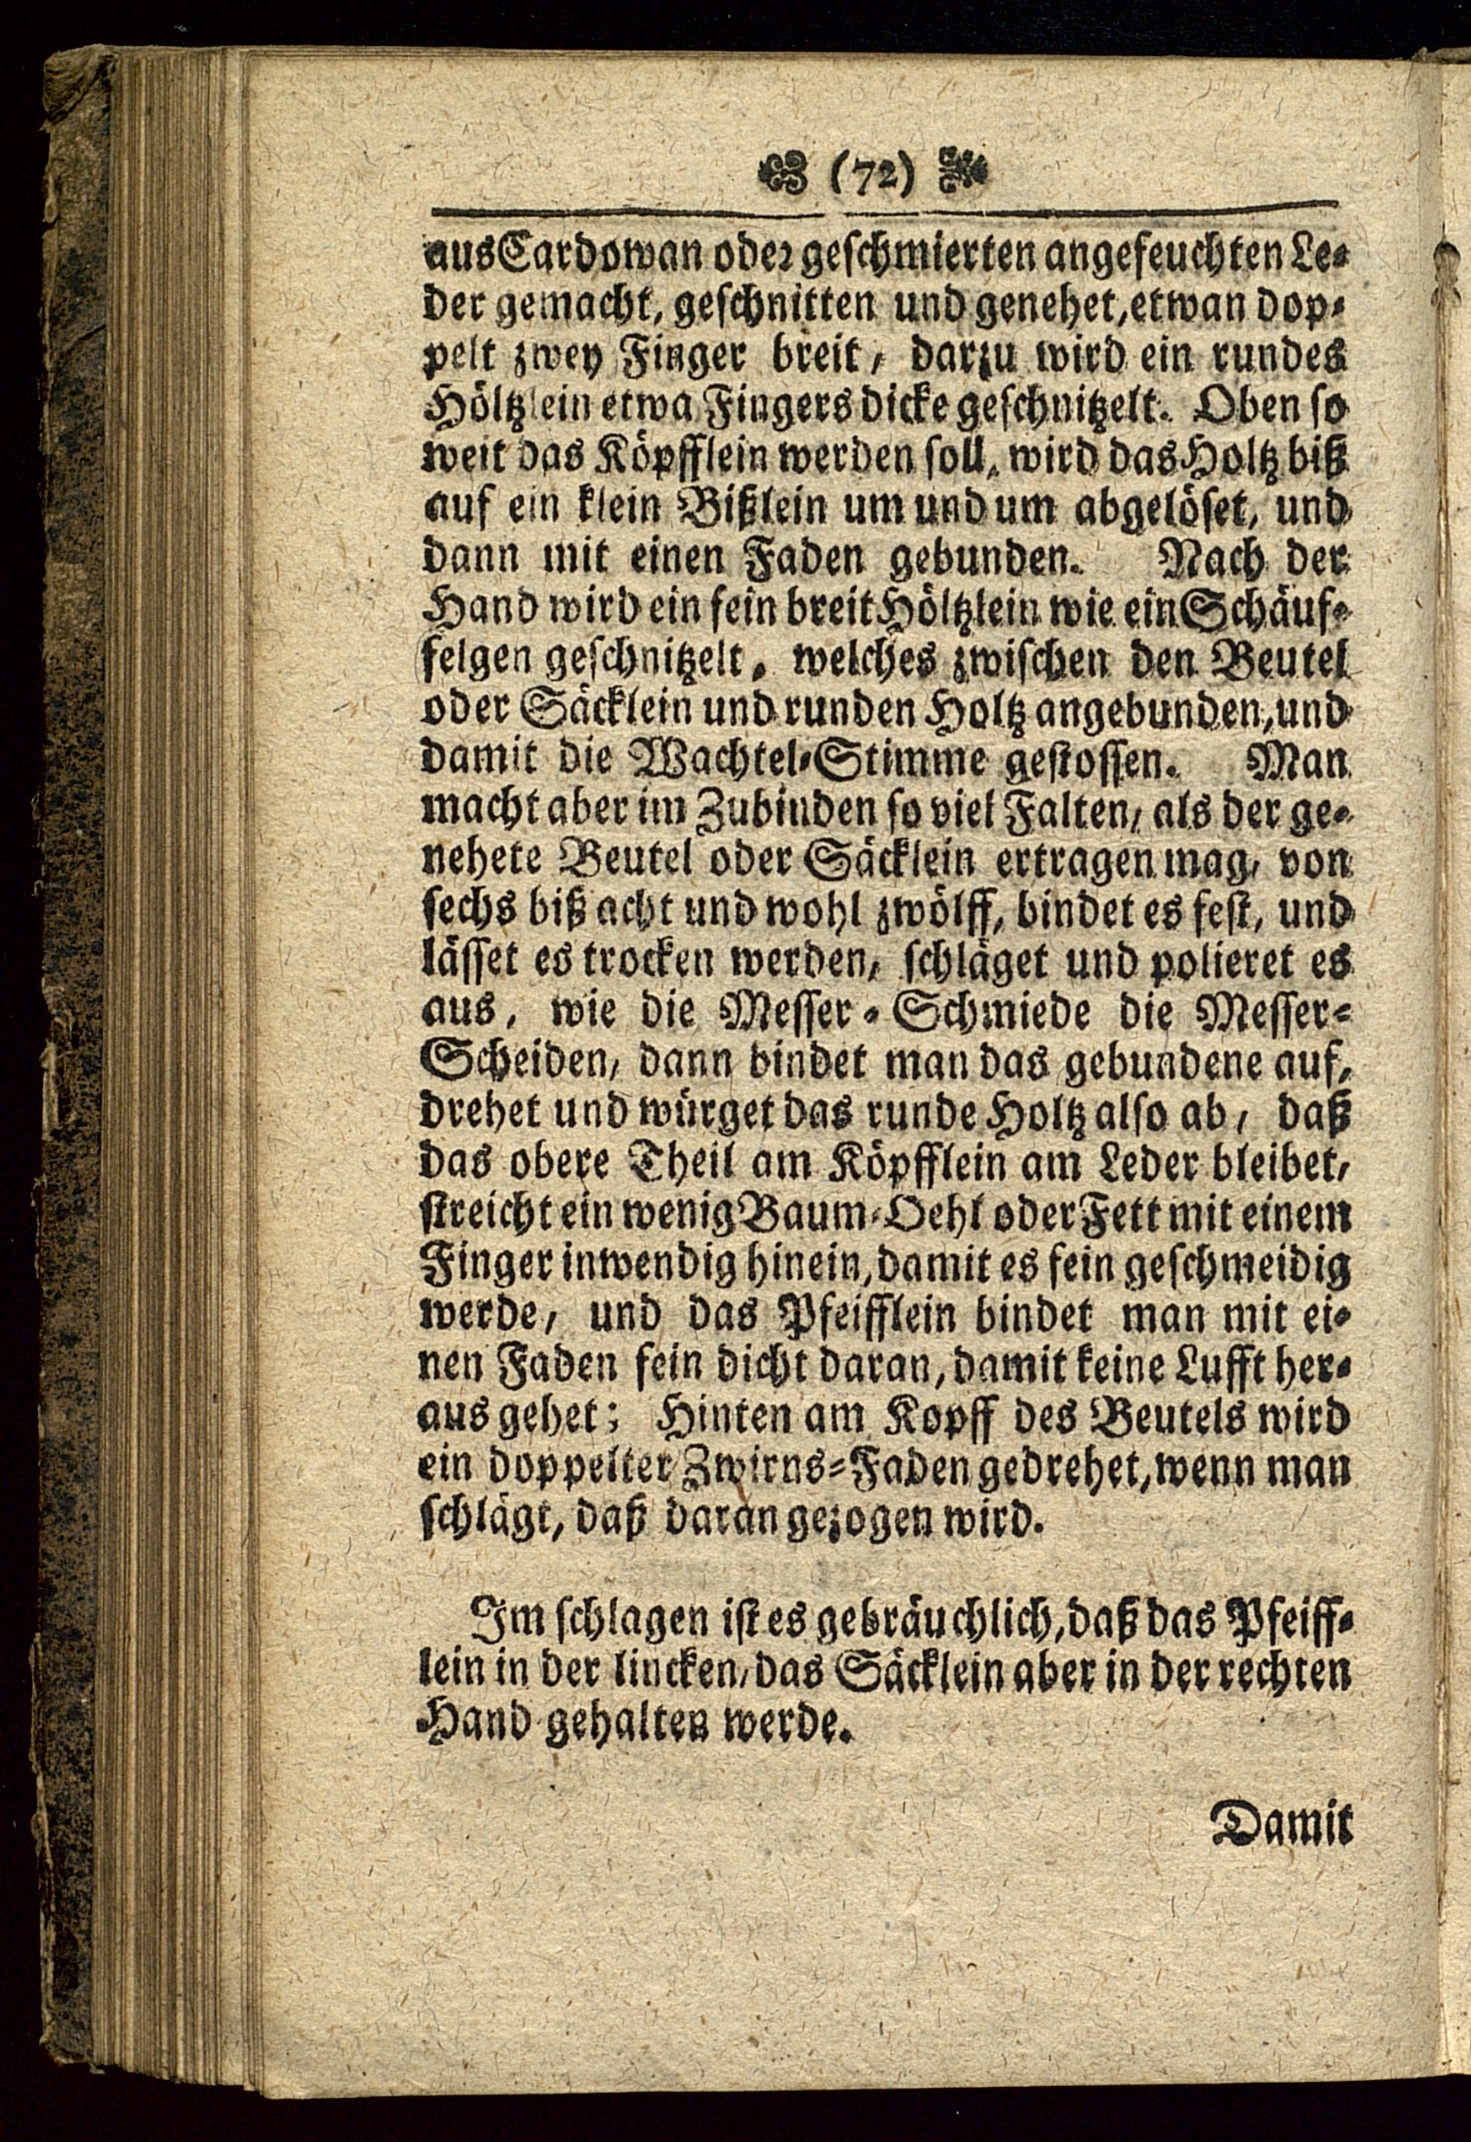 (72)
aus Cardowan oder geschmierten angefeuchten Le-
der gemacht, geschnitten und genehet, etwan dop-
pelt zwey Finger breit, darzu wird ein rundes
Höltzlein etwa Fingers dicke geschnitzelt. Oben so
weit das Köpfflein werden soll, wird das Holtz biß
auf ein klein Bißlein um und um abgelöset, und
dann mit einen Faden gebunden. Nach der
Hand wird ein fein breit Höltzlein wie ein Schäuf-
felgen geschnitzelt, welches zwischen den Beutel
oder Säcklein und runden Holtz angebunden, und
damit die Wachtel-Stimme gestossen. Man
macht aber im Zubinden so viel Falten, als der ge-
nehete Beutel oder Säcklein ertragen mag, von
sechs biß acht und wohl zwölff, bindet es fest, und
lässet es trocken werden, schläget und polieret es
aus, wie die Messer-Schmiede die Messer-
Scheiden, dann bindet man das gebundene auf,
drehet und würget das runde Holtz also ab, daß
das obere Theil am Köpfflein am Leder bleibet,
streicht ein wenig Baum-Oehl oder Fett mit einem
Finger inwendig hinein, damit es fein geschmeidig
werde, und das Pfeifflein bindet man mit ei-
nen Faden fein dicht daran, damit keine Lufft her-
aus gehet; Hinten am Kopff des Beutels wird
ein doppelter Zwirns-Faden gedrehet, wenn man
schlägt, daß daran gezogen wird.
Im schlagen ist es gebräuchlich, daß das Pfeiff-
lein in der lincken, das Säcklein aber in der rechten
Hand gehalten werde.
Damit